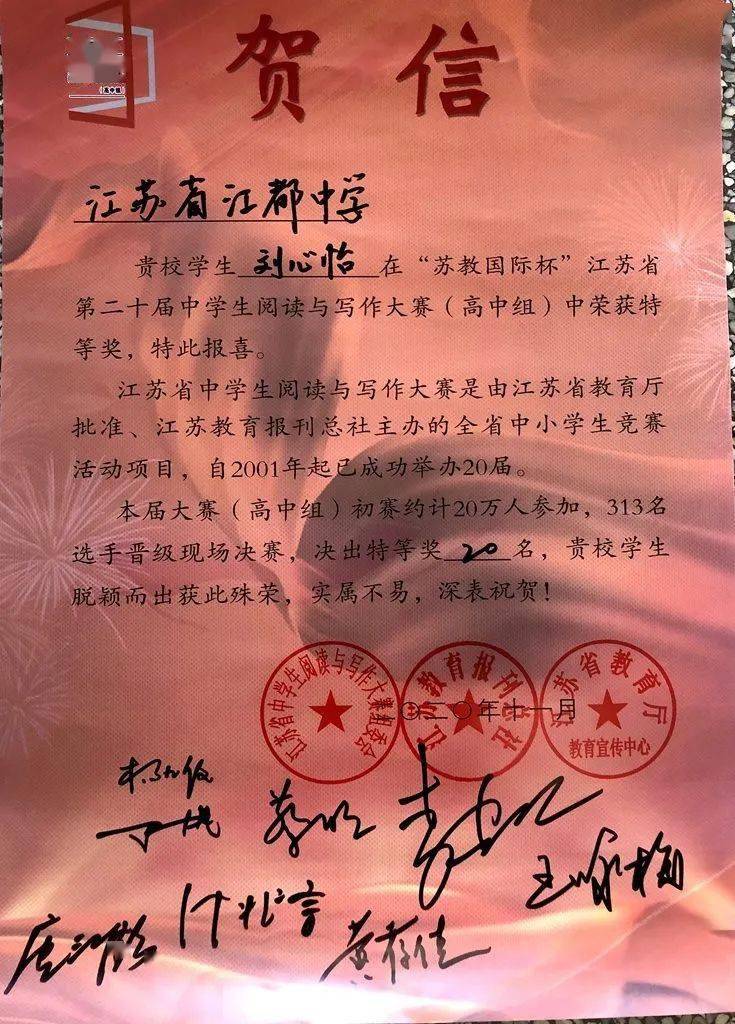 （高中组）
贺信
江苏省江都中学
贵校学生刘心怡在“苏教国际杯”江苏省
第二十届中学生阅读与写作大赛（高中组）中荣获特
等奖，特此报喜。
江苏省中学生阅读与写作大赛是由江苏省教育厅
批准、江苏教育报刊总社主办的全省中小学生竞赛
活动项目，自2001年起已成功举办20届。
本届大赛（高中组）初赛约计20万人参加，313名
选手晋级现场决赛，决出特等奖20名，贵校学生
脱颖而出获此殊荣，实属不易，深表祝贺！
江苏省中学生阅读与写作大赛组委会
江苏教育报刊总社
江苏省教育厅
教育宣传中心
二〇二〇年十一月
蔡明
王咏梅
黄存佳